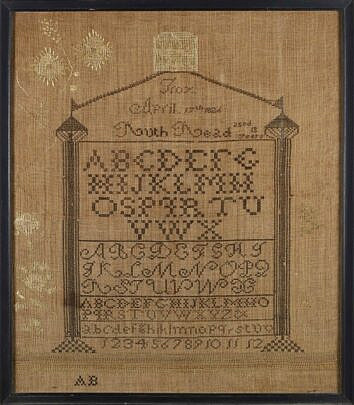 Troy
April 17th 1824
Ruth Read aged
13
years
ABCDEFG
HIJKLMN
OPQRSTU
VWX
ABCDEFGHI
JKLMNOPQ
RSTUVWX
ABCDEFGHIJKLMNO
PQRSTUVWXYZ
abcdefghiklmnopqrstuv
1 2 3 4 5 6 7 8 9 10 11 12
AB